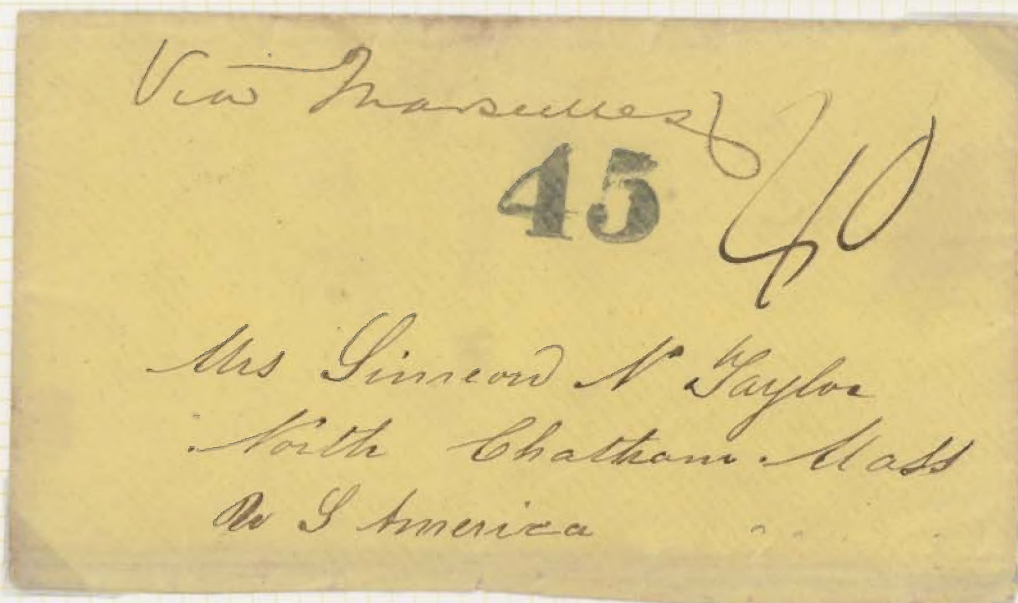 Via Marseilles
45
40
Mrs Simeon N Taylor
North Chatham Mass
U S America